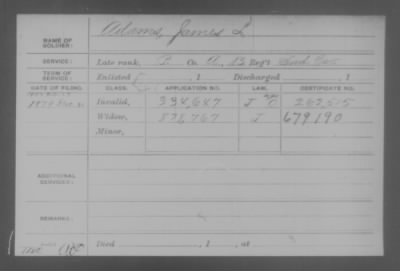 NAME OF SOLDIER: Adams, James L
SERVICE: Late rank, P Co. A, 13 Reg't Ind. Cav.
TERM OF SERVICE: Enlisted , 1 Discharged , 1
DATE OF FILING. CLASS. APPLICATION NO. LAW. CERTIFICATE NO.
1879 Invalid, 334,647 J 262,515
Widow, 878,767 J 679190
Minor,
ADDITIONAL SERVICES:
REMARKS:
Died , 1 , at